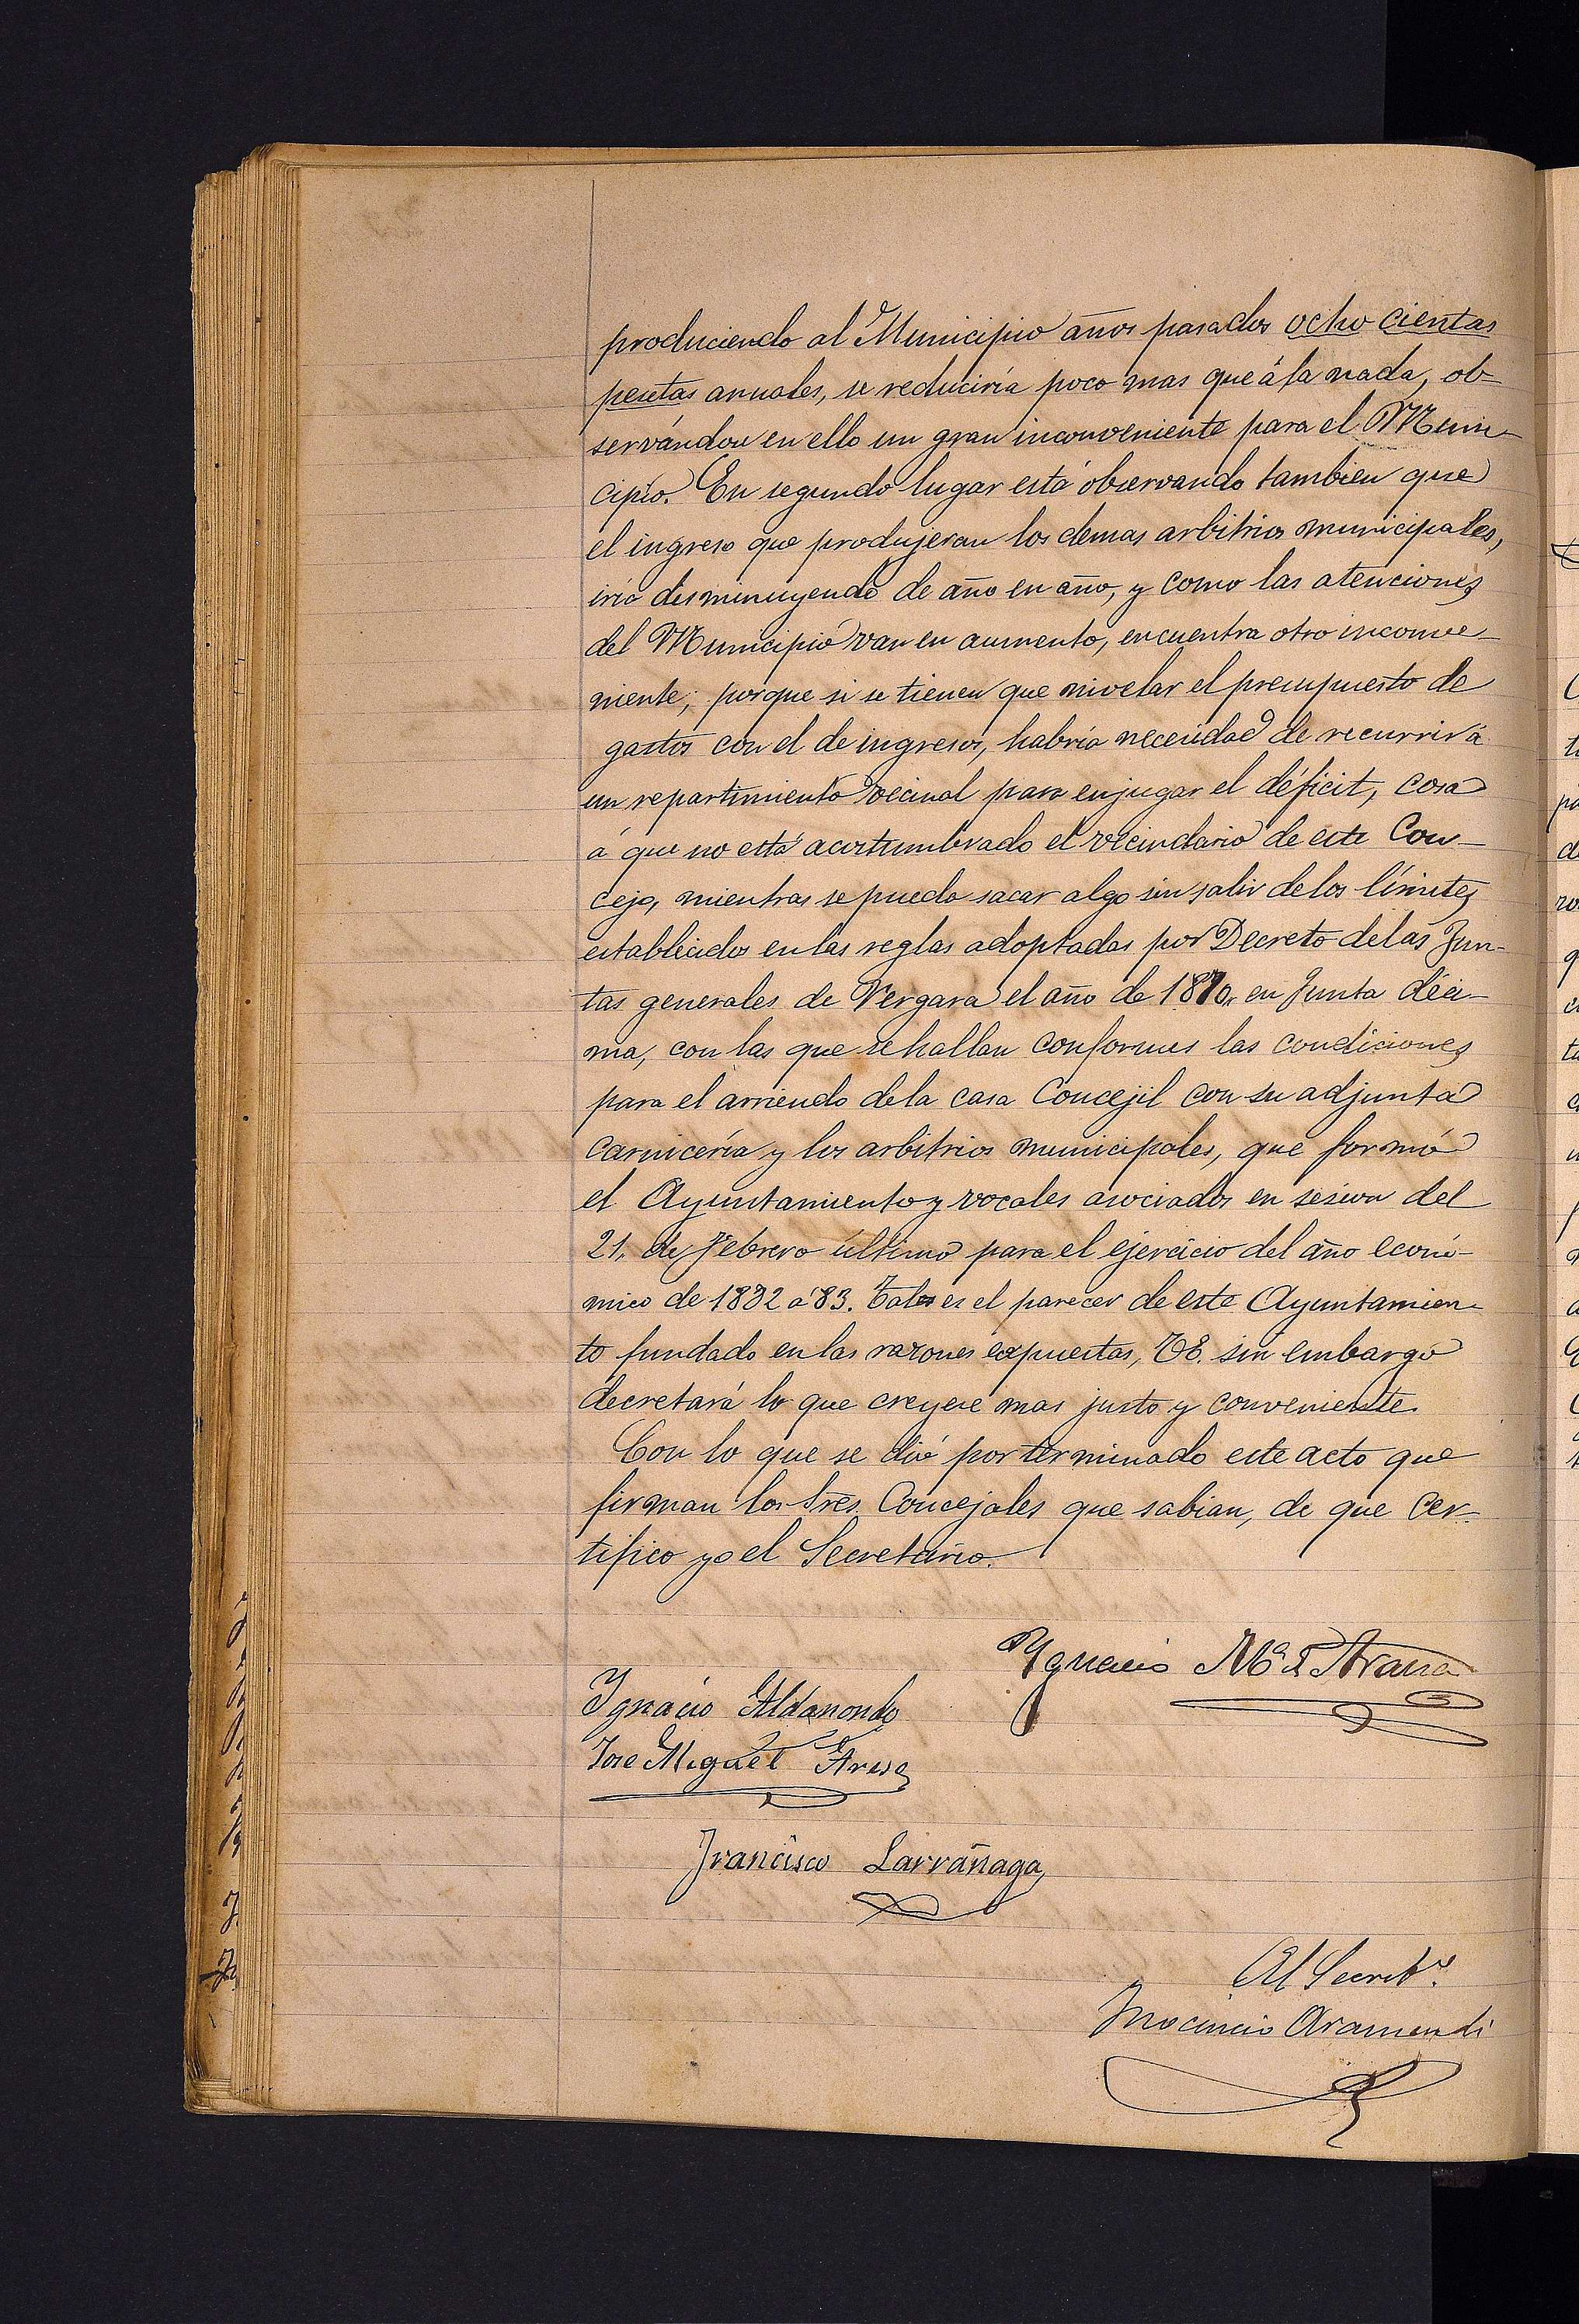 produciendo al Municipio años pasados ocho cientas
pesetas anuales, se reduciría poco mas que á la nada, ob-
servándose en ello un gran inconveniente para el Muni-
cipio. En segundo lugar está observando tambien que
el ingreso que produjeran los demas arbitrios municipales,
iria disminuyendo de año en año, y como las atenciones
del Municipio van en aumento, encuentra otro inconve-
niente; porque si se tienen que nivelar el presupuesto de
gastos con el de ingresos, habria necesidad de recurrir á
un repartimiento vecinal para enjugar el déficit, cosa
á que no está acostumbrado el vecindario de este Con-
cejo, mientras se pueda sacar algo sin salir de los límites
establecidos en las reglas adoptadas por Decreto de las Jun-
tas generales de Vergara el año de 1870, en Junta déci-
ma, con las que se hallan conformes las condiciones
para el arriendo de la casa Concejil con su adjunta
carnicería y los arbitrios municipales, que formó
el Ayuntamiento y vocales asociados en sesion del
21. de Febrero último para el ejercicio del año econó-
mico de 1882 á 83. Tal es el parecer de este Ayuntamien-
to fundado en las razones expuestas, VE. sin embargo
decretará lo que creyere mas justo y conveniente.
Con lo que se dió por terminado este acto que
firman los Sres. Concejales que sabian, de que cer-
tifico yo el Secretario.
Ygnacio Mª de Arana
Ygnacio Aldanondo
Jose Miguel
Francisco Larrañaga
El Secretº.
Inocencio Aramendi